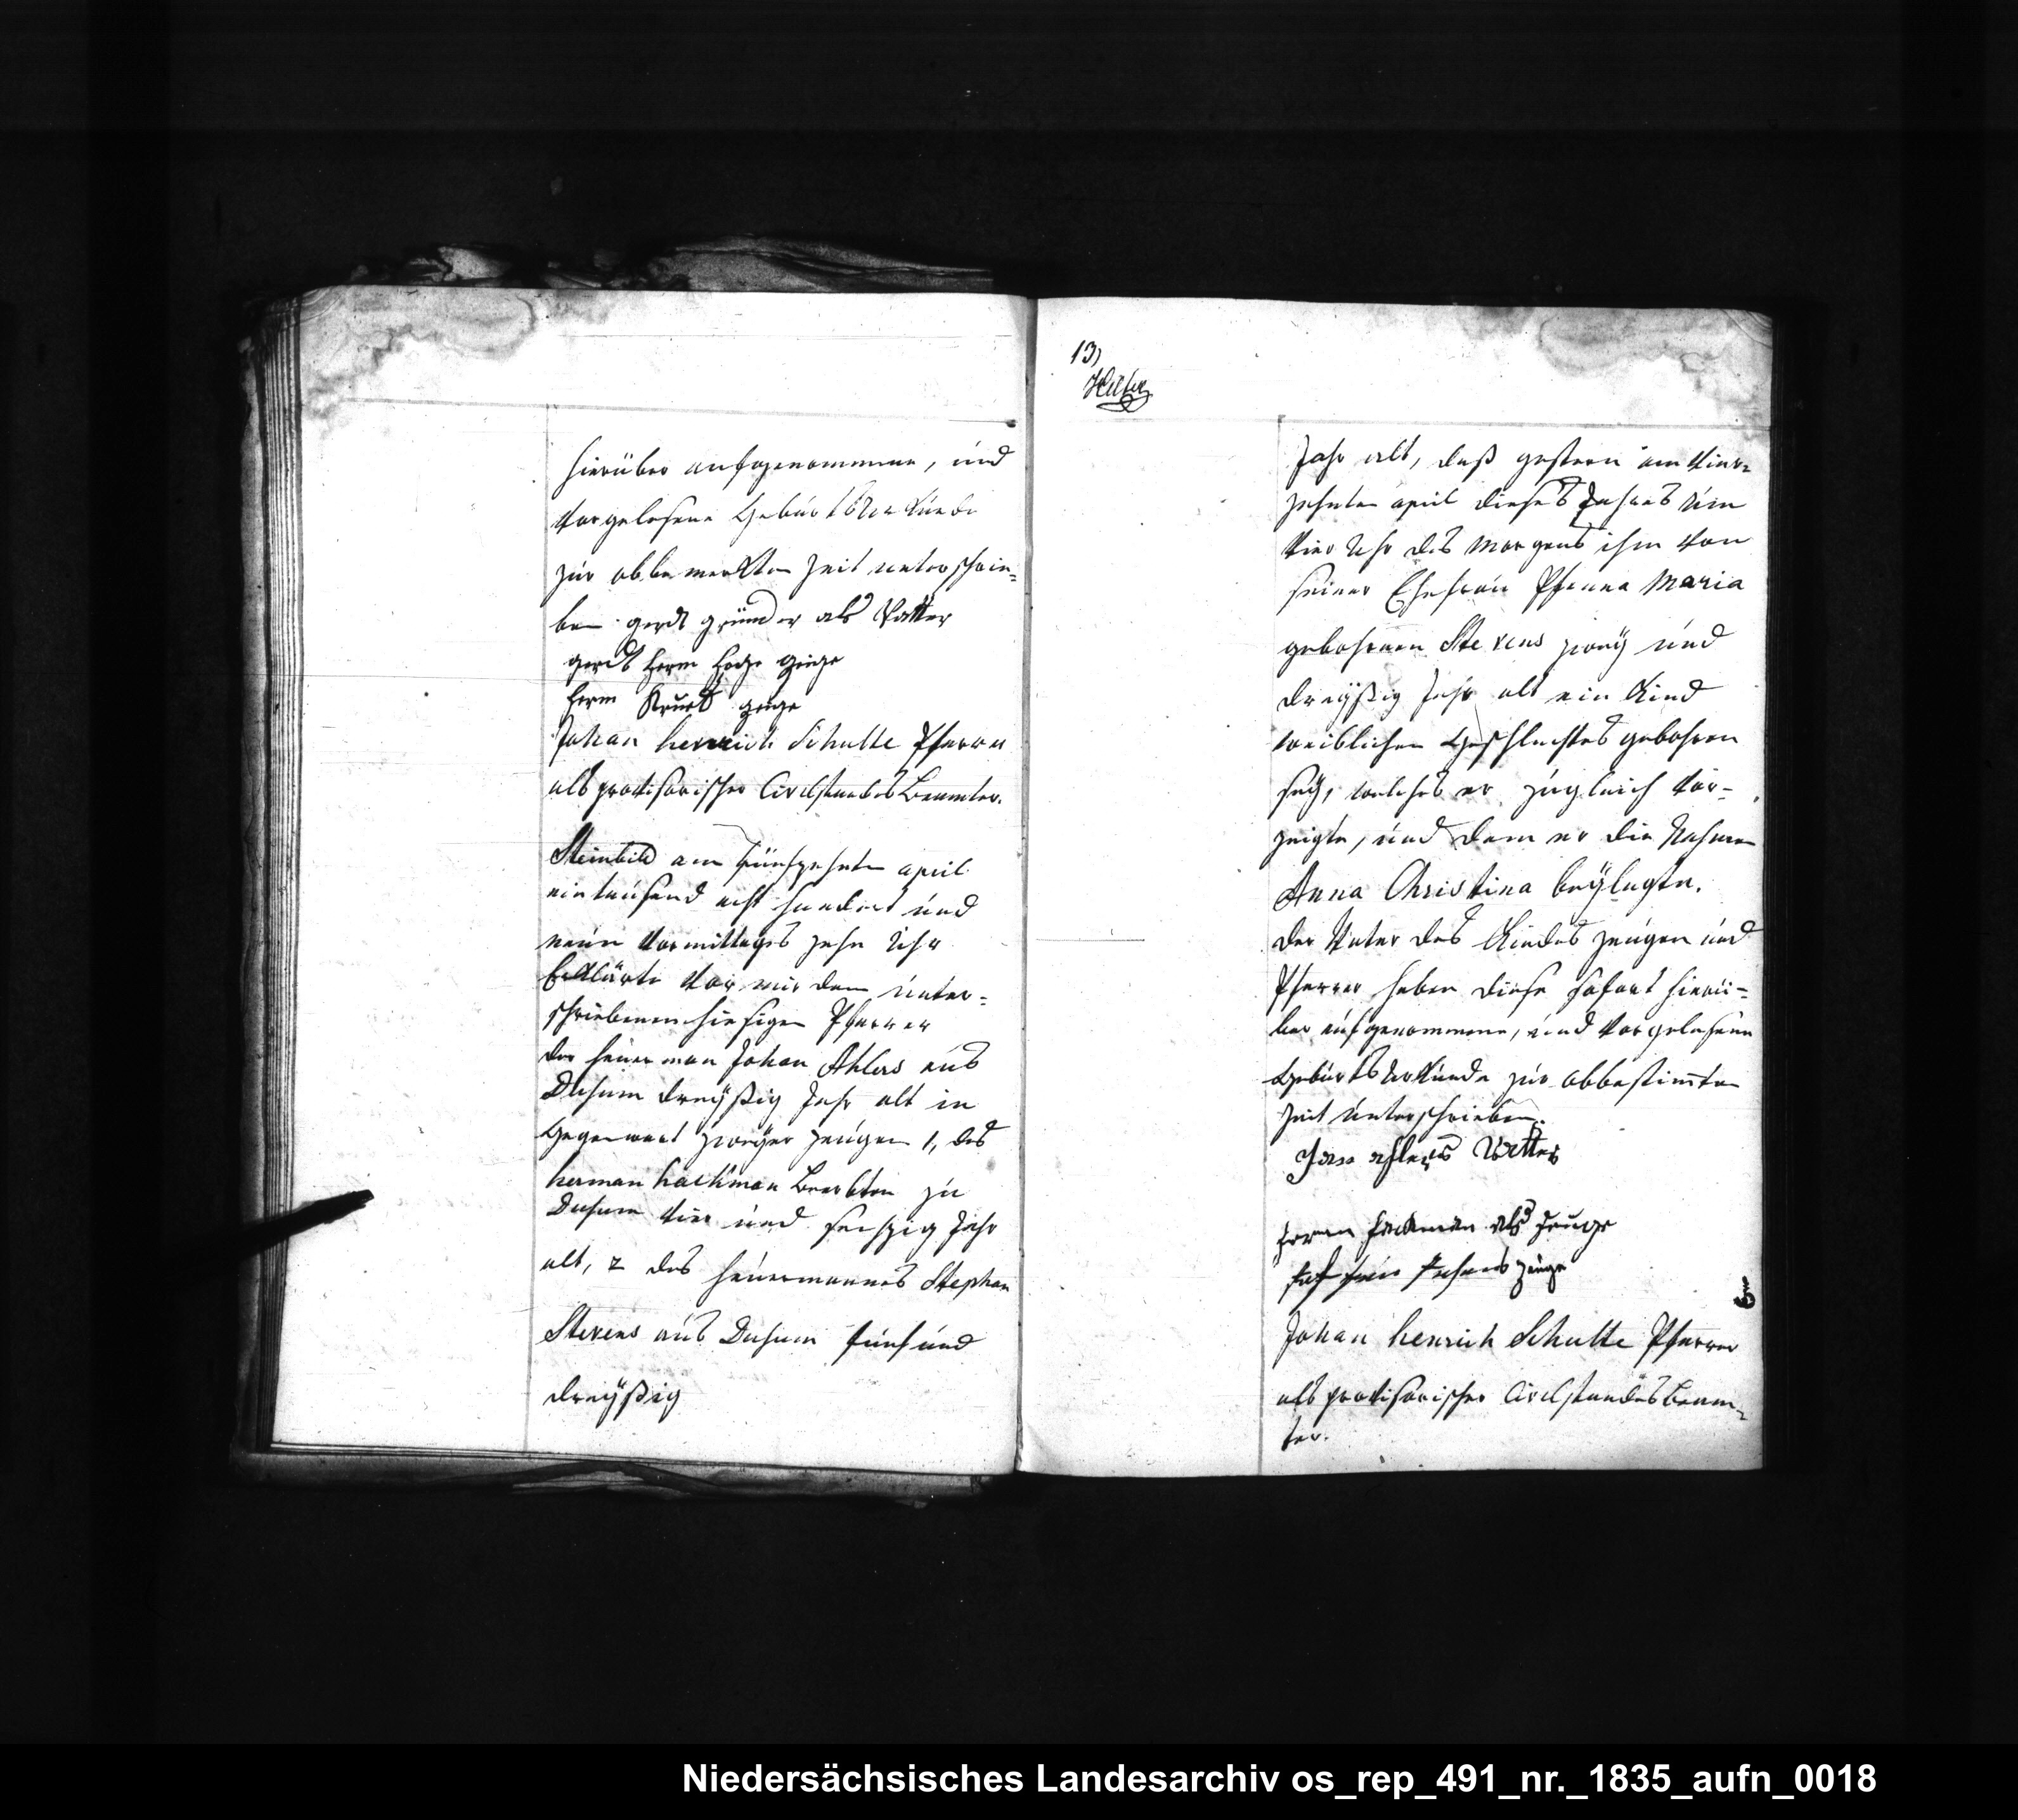 hierüber aufgenommene, und
vorgelesene Geburts Urkunde
zur obbemerkten Zeit unterschrie=
ben gerdt gründer als Vatter
gerdt herm
herm Zeuge
Johan henrich Schulte Pfarrer
als provisorischer Civilstandes Beamter.
Steinbild am fünfzehnten april
eintausend acht hundert und
neun Vormittages zehn Uhr
Erklärte vor mir dem unter=
schriebenen hiesigen Pfarrer
der heuerman Johan Ahlers aus
Duhum dreyßig Jahr alt in
Gegenwart zweyer Zeugen 1, des
herman hackman Beerbten zu
Duhum vier und sechszig Jahr
alt, 2 des heuermannes Stephan
Stevens aus Duhum fünf und
dreyßig
13,
Jahr alt, daß gestern am vier=
zehnten april dieses Jahres um
vier Uhr des Morgens ihm von
seiner Ehefrau Maria
gebohrnen Stevens zwey und
dreyßig Jahr alt ein Kind
weiblichen Geschlechtes gebohren
sey, welches er zugleich vor=
zeigte, und dem er die Nahmen
Anna Christina beylegte.
der Vater des Kindes Zeugen und
Pfarrer haben diese sofort hierü=
ber aufgenommene, und vorgelesene
Geburts Urkunde zur obbestimten
Zeit unterschrieben.
Jan ahlers Vatter
herm hackman als Zeuge
Zeuge
Johan henrich Schulte Pfarrer
als provisorischer Civilstandes Beam=
ter.
Niedersächsisches Landesarchiv os_rep_491_nr._1835_aufn_0018